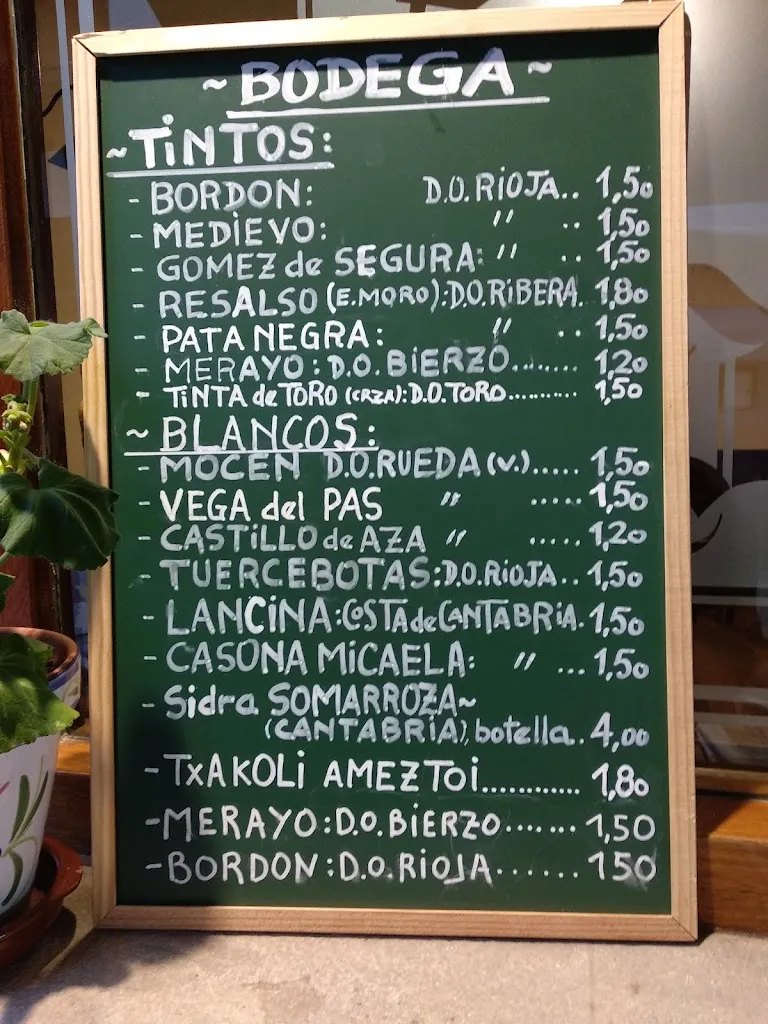 ~ BODEGA ~
~TiNTOS:
- BORDON: D.O. RiOJA.. 1,50
- MEDiEVO: " .. 1,50
- GOMEZ de SEGURA: " .. 1,50
- RESALSO (E.MORO):D.O.RiBERA. 1,80
- PATA NEGRA: " .. 1,50
- MERAYO: D.O. BiERZO........ 1,20
- TiNTA de TORO (CRZA): D.O. TORO.......... 1,50
~ BLANCOS:
- MOCEN D.O.RUEDA (V.)..... 1,50
- VEGA del PAS " ..... 1,50
- CASTiLLO de AZA " ..... 1,20
- TUERCEBOTAS:D.O.RiOJA.. 1,50
- LANCiNA:COSTA de CANTABRiA. 1,50
- CASONA MiCAELA: " ... 1,50
- Sidra SOMARROZA~
(CANTABRiA), botella. 4,00
- TxAKOLi AMEZTOi............ 1,80
- MERAYO: D.O. BiERZO....... 1,50
- BORDON: D.O. RiOJA...... 150